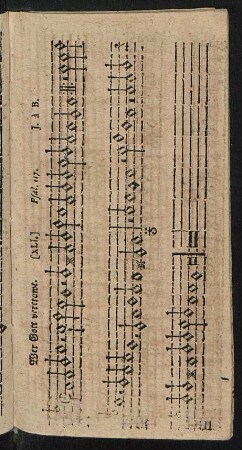 Wer Gott vertrawt. [XLI.] Psal. 117. J. à B.